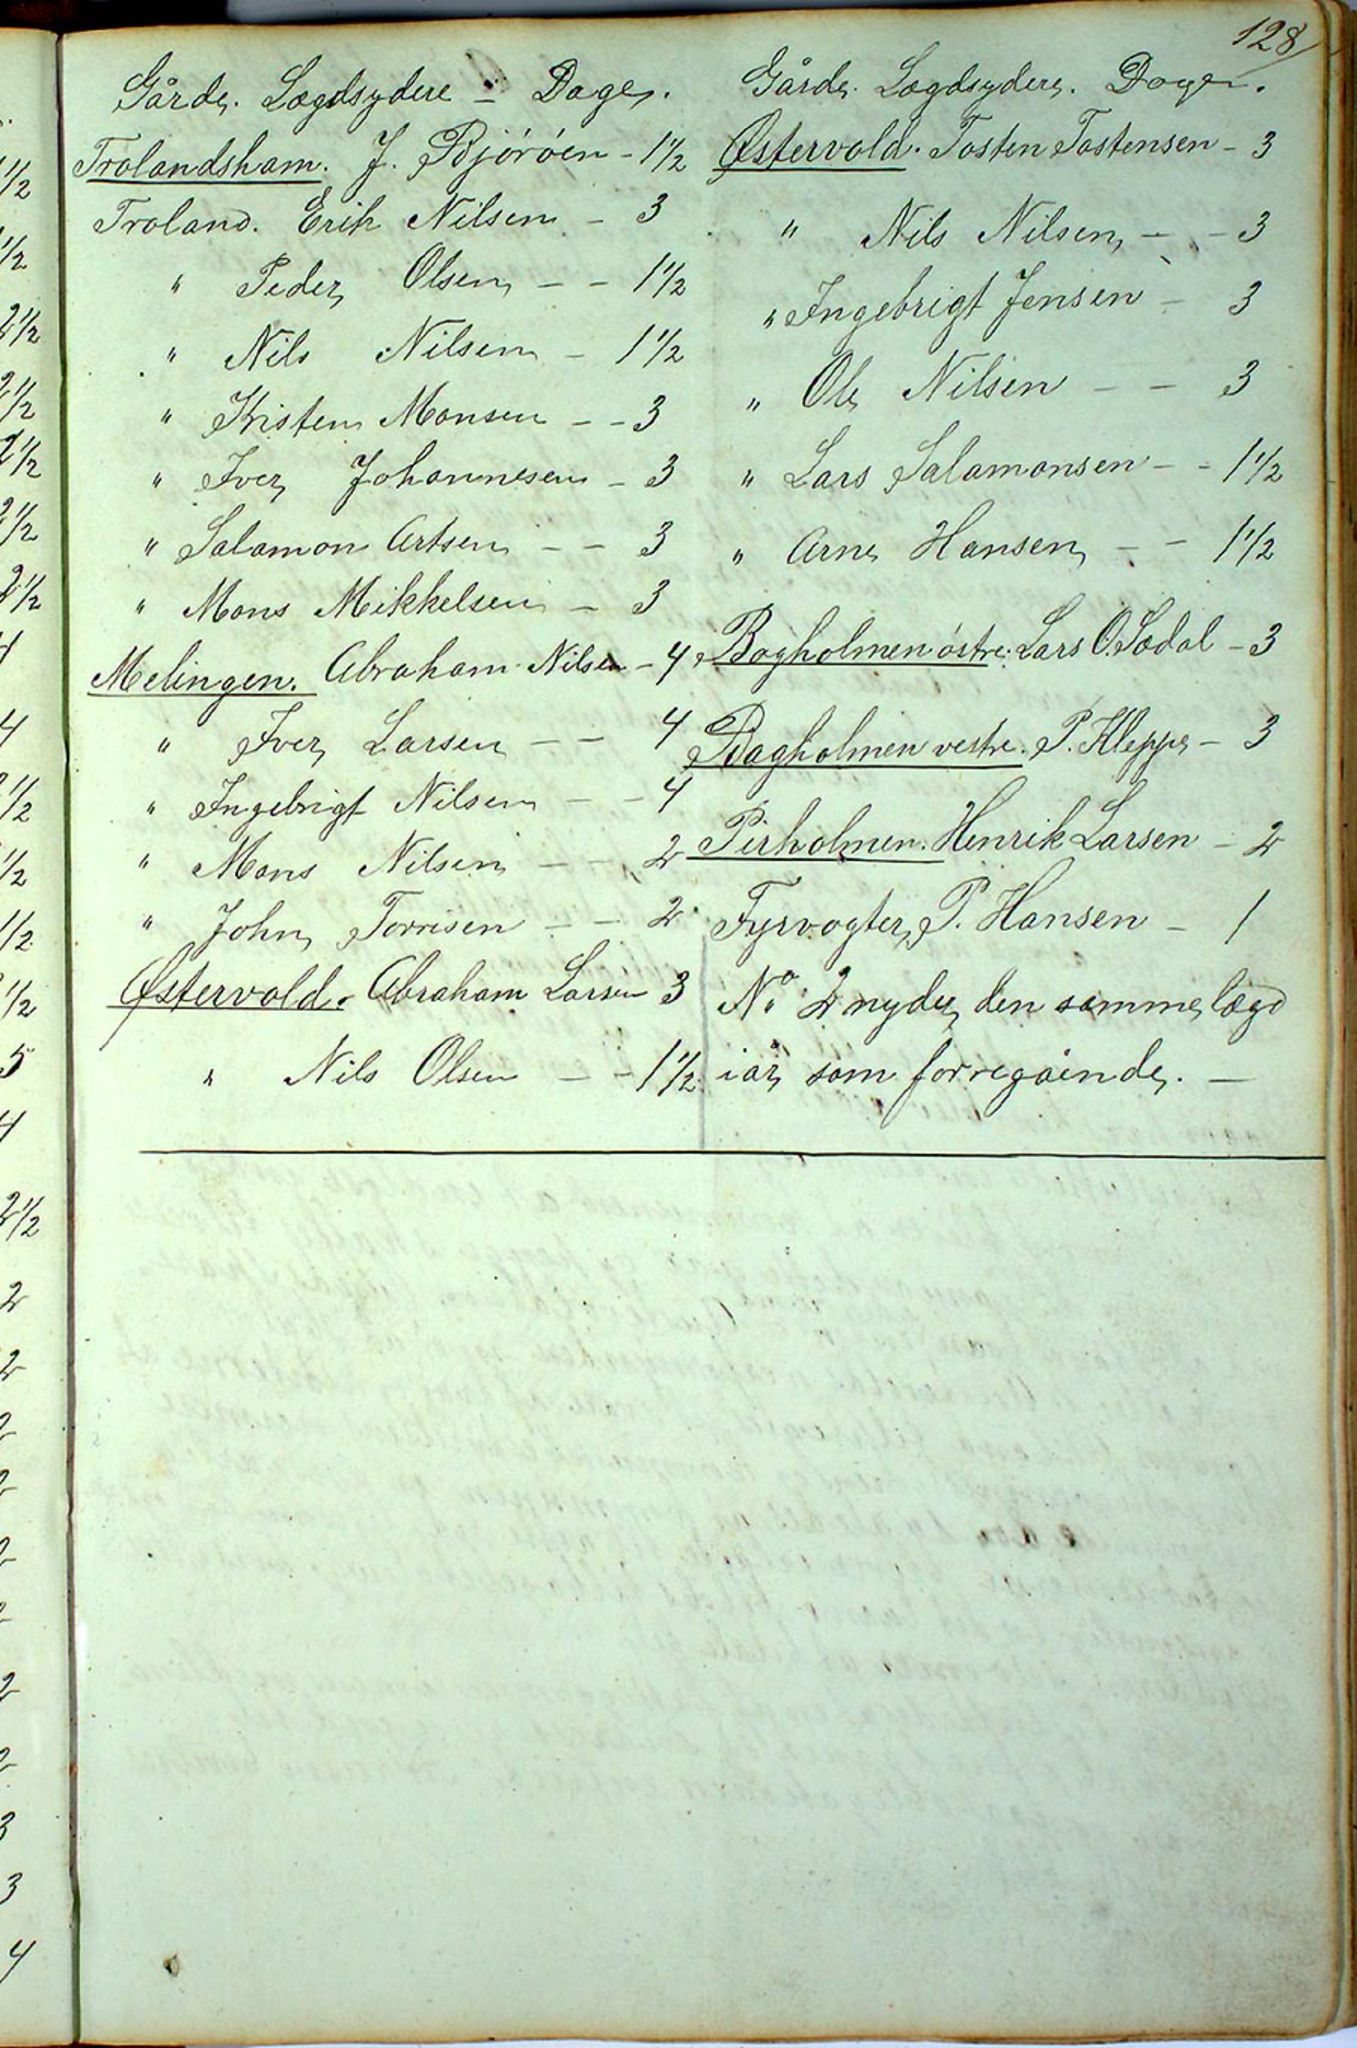 128
Gårde. Lægdsydere - Dage.
Trolandsham. J. Björöen - 1 1/2
Troland. Erik Nilsen - 3
" Peder Olsen - - 1 1/2
" Nils Nilsen - 1 1/2
" Kristen Monsen - - 3
" Iver Johannesen - 3
" Salamon Artsen - - 3
" Mons Mikkelsen - 3
Melingen. Abraham Nilsen - 4
" Iver Larsen - - 4
" Ingebrigt Nilsen - - 4
" Mons Nilsen - - 2
" John Torrisen - - 2
Østervold. Abraham Larsen 3
" Nils Olsen - - 1 1/2
Gårde. Lægdsydere. Dage.
Østervold. Tosten Tostensen - 3
" Nils Nilsen - - 3
" Ingebrigt Jensen - 3
" Ole Nilsen - - 3
" Lars Salamonsen - - 1 1/2
" Arne Hansen - - 1 1/2
Bagholmen östre. Lars O. Sædal - 3
Bagholmen vestre. P. Kleppe - 3
Pirholmen. Henrik Larsen - 2
Fyrvogter P. Hansen - 1
No 2 nyder den samme lægd
iår som forregåënde. -
1/2
1/2
2 1/2
2 1/2
2 1/2
2 1/2
2 1/2
4
4
1/2
1/2
1/2
1/2
5
4
2 1/2
2
2
2
2
2
2
2
2
3
3
4